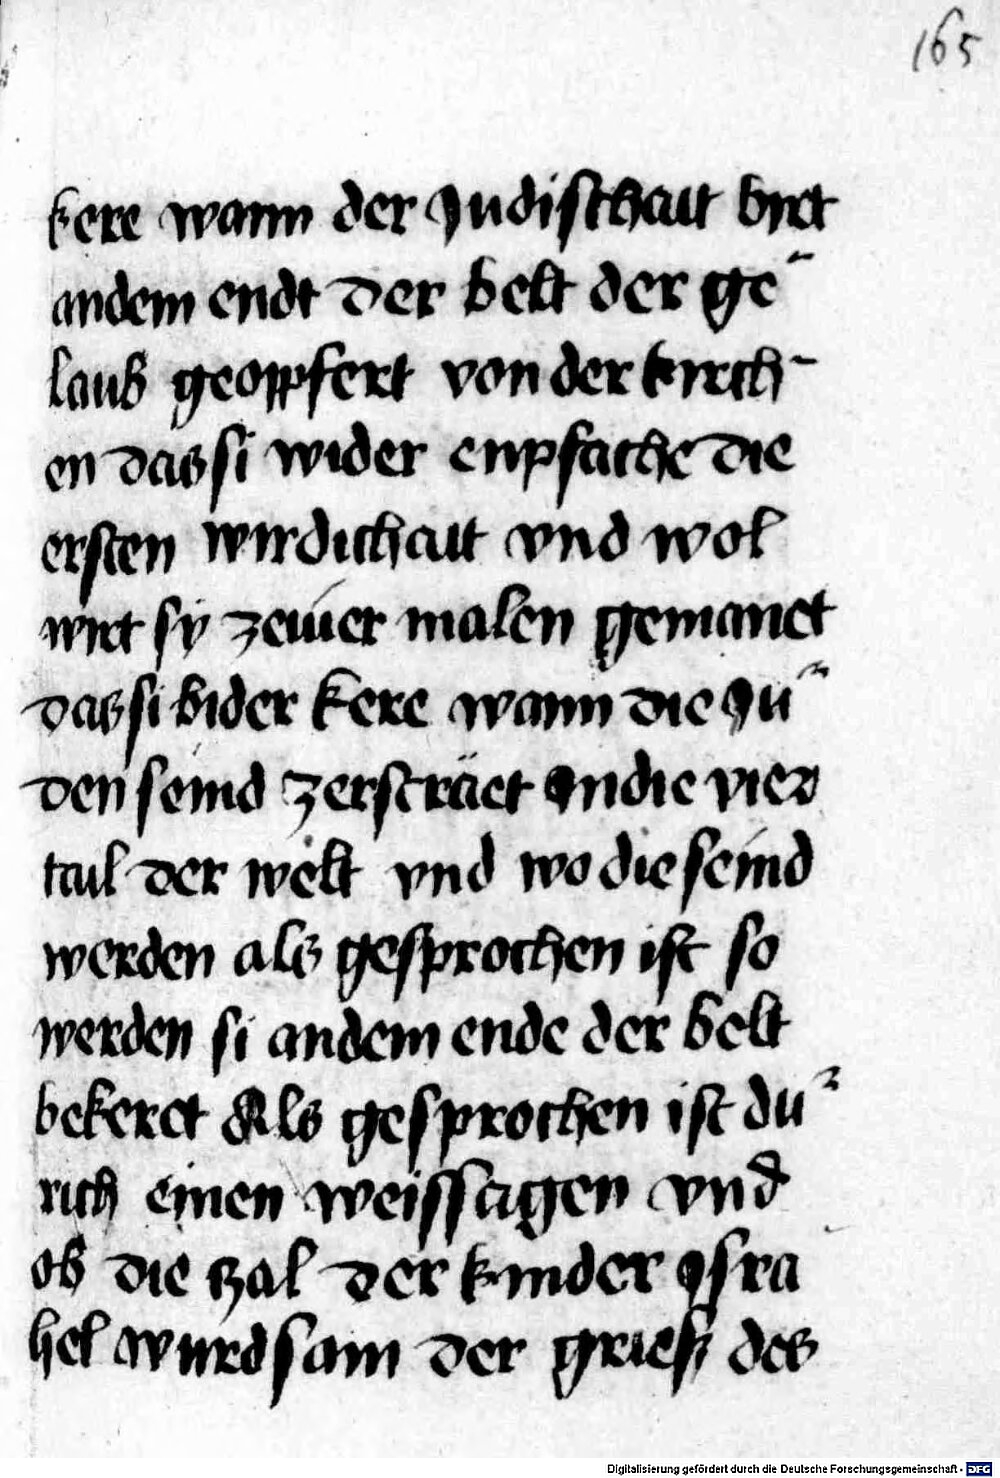 165
kere wann der Judischait birt
andem endt der belt der ge
laub geopfert von der kirch-
en das si wider enpfache die
ersten wirdichait vnd wol
wirt sy zewier malen gemanet
das si bider kere wann die Ju
den seind zersträet Jndie vier
tail der welt vnd wo die seind
werden als gesprochen ist so
werden si andem ende der belt
bekeret Als gesprochen ist du
rich einen weissagen vnd
ob die zal der kinder Jsra
hel wurd sam der griess des
Digitalisierung gefördert durch die Deutsche Forschungsgemeinschaft - DFG